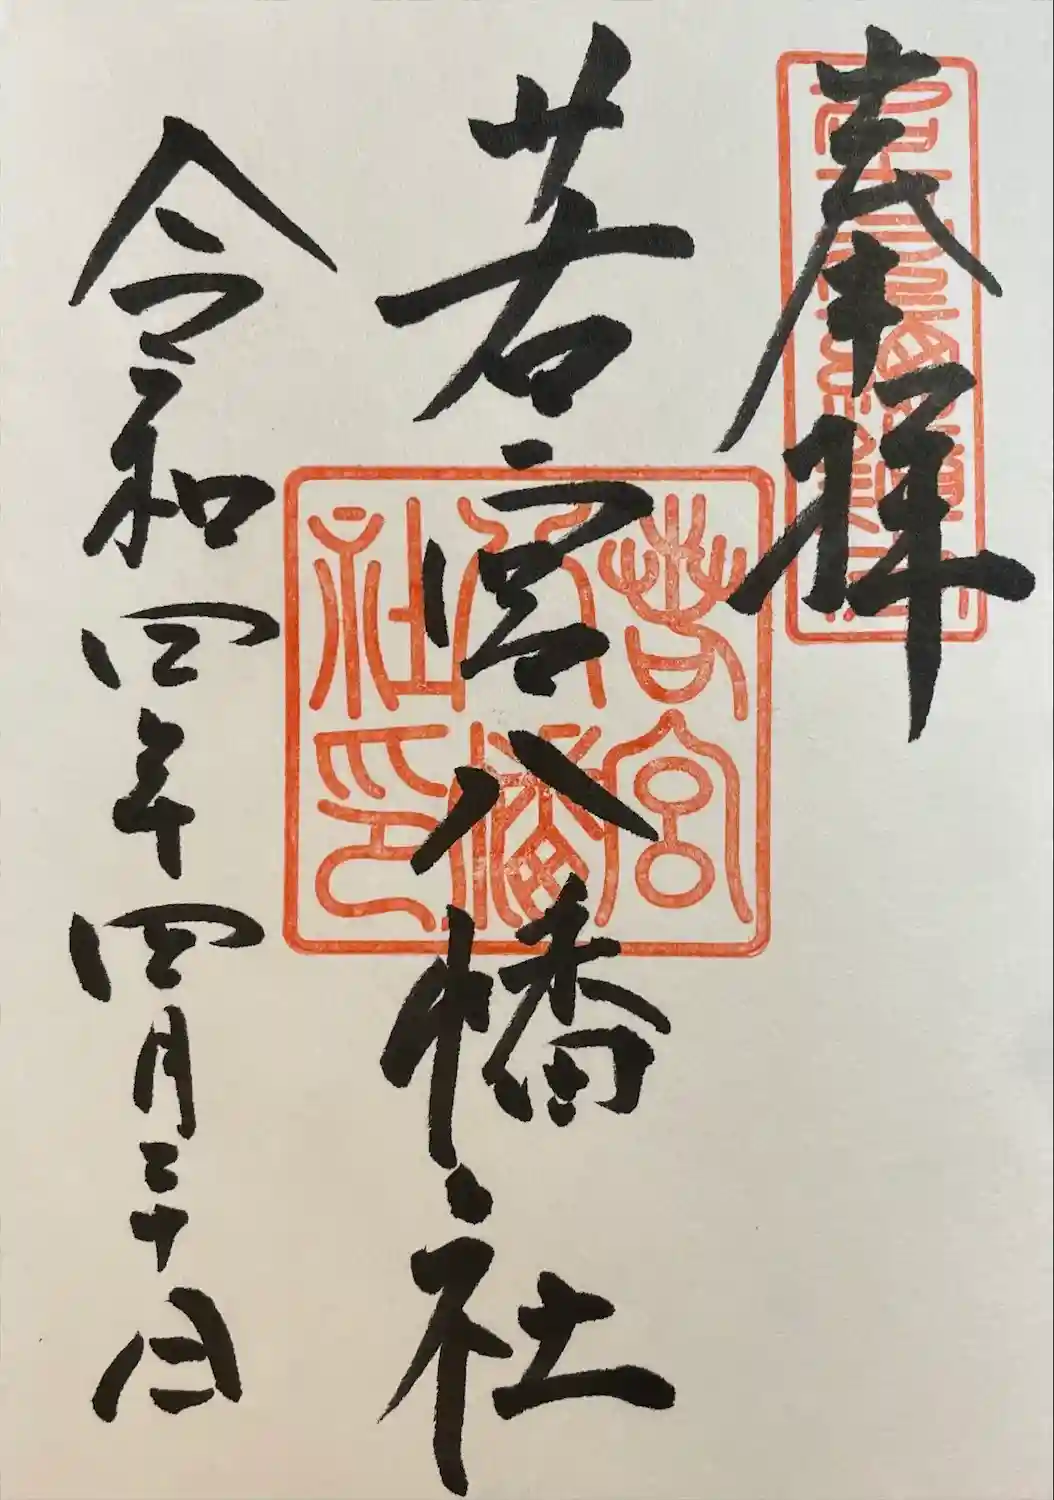 奉拝
若宮八幡社
若宮八幡社印
令和四年四月三十日